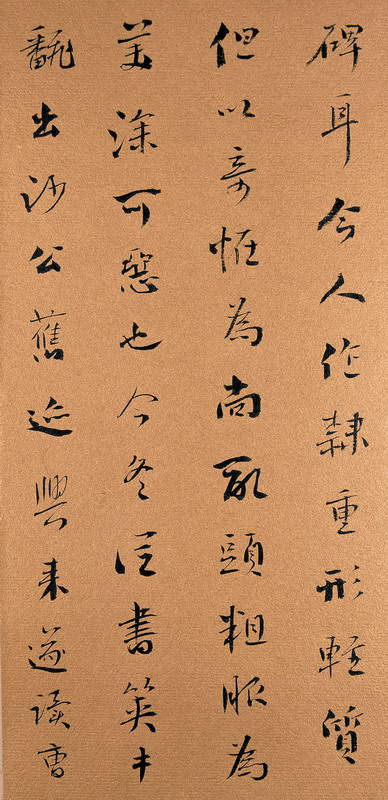 碑耳今人作隷重形輕質
但以奇怪為尚亂頭粗服為
美深可也今冬從書篋中
翻出沙公舊迹興来遂讀曹